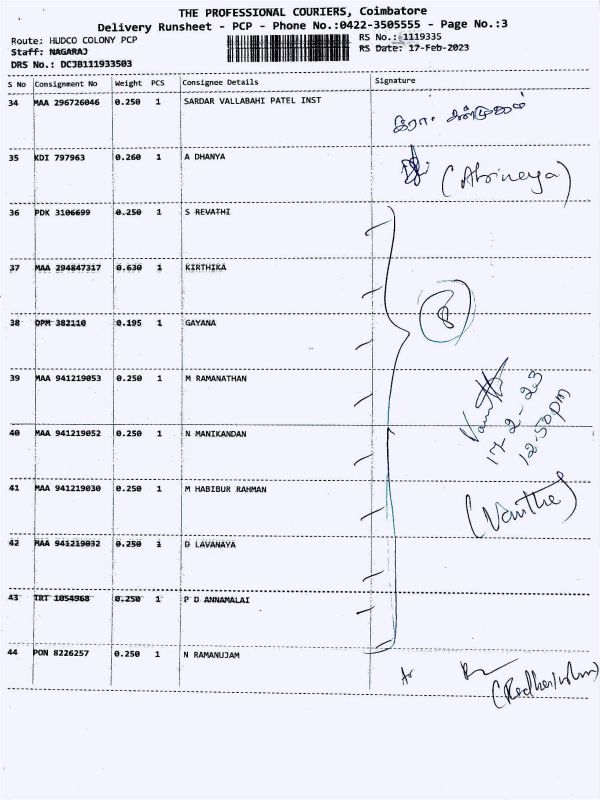 THE PROFESSIONAL COURIERS, Coimbatore
Delivery Runsheet - PCP - Phone No.:0422-3505555 - Page No.:3
Route: HUDCO COLONY PCP
RS No.: 1119335
Staff: NAGARAJ
RS Date: 17-Feb-2023
DRS No.: DCJB111933503
S No Consignment No Weight PCS Consignee Details Signature
34 MAA 296726046 0.250 1 SARDAR VALLABAHI PATEL INST
35 KDI 797963 0.260 1 A DHANYA
(Abrineya)
36 PDK 3106699 0.250 1 S REVATHI
37 MAA 294847317 0.630 1 KIRTHIKA
8
38 OPM 382110 0.195 1 GAYANA
39 MAA 941219053 0.250 1 M RAMANATHAN
17-2-23
12.50pm
40 MAA 941219052 0.250 1 N MANIKANDAN
41 MAA 941219030 0.250 1 M HABIBUR RAHMAN
(Vanitha)
42 MAA 941219032 0.250 1 D LAVANAYA
43 TRT 1054968 0.250 1 P D ANNAMALAI
44 PON 8226257 0.250 1 N RAMANUJAM